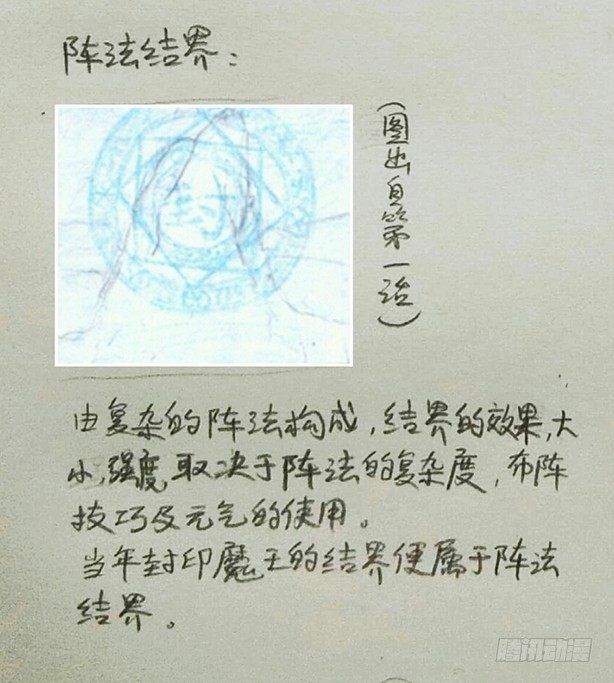 阵法结界：
封
（图出自第一话）
由复杂的阵法构成，结界的效果，大
小，强度，取决于阵法的复杂度，布阵
技巧及元气的使用。
当年封印魔王的结界便属于阵法
结界。
腾讯动漫